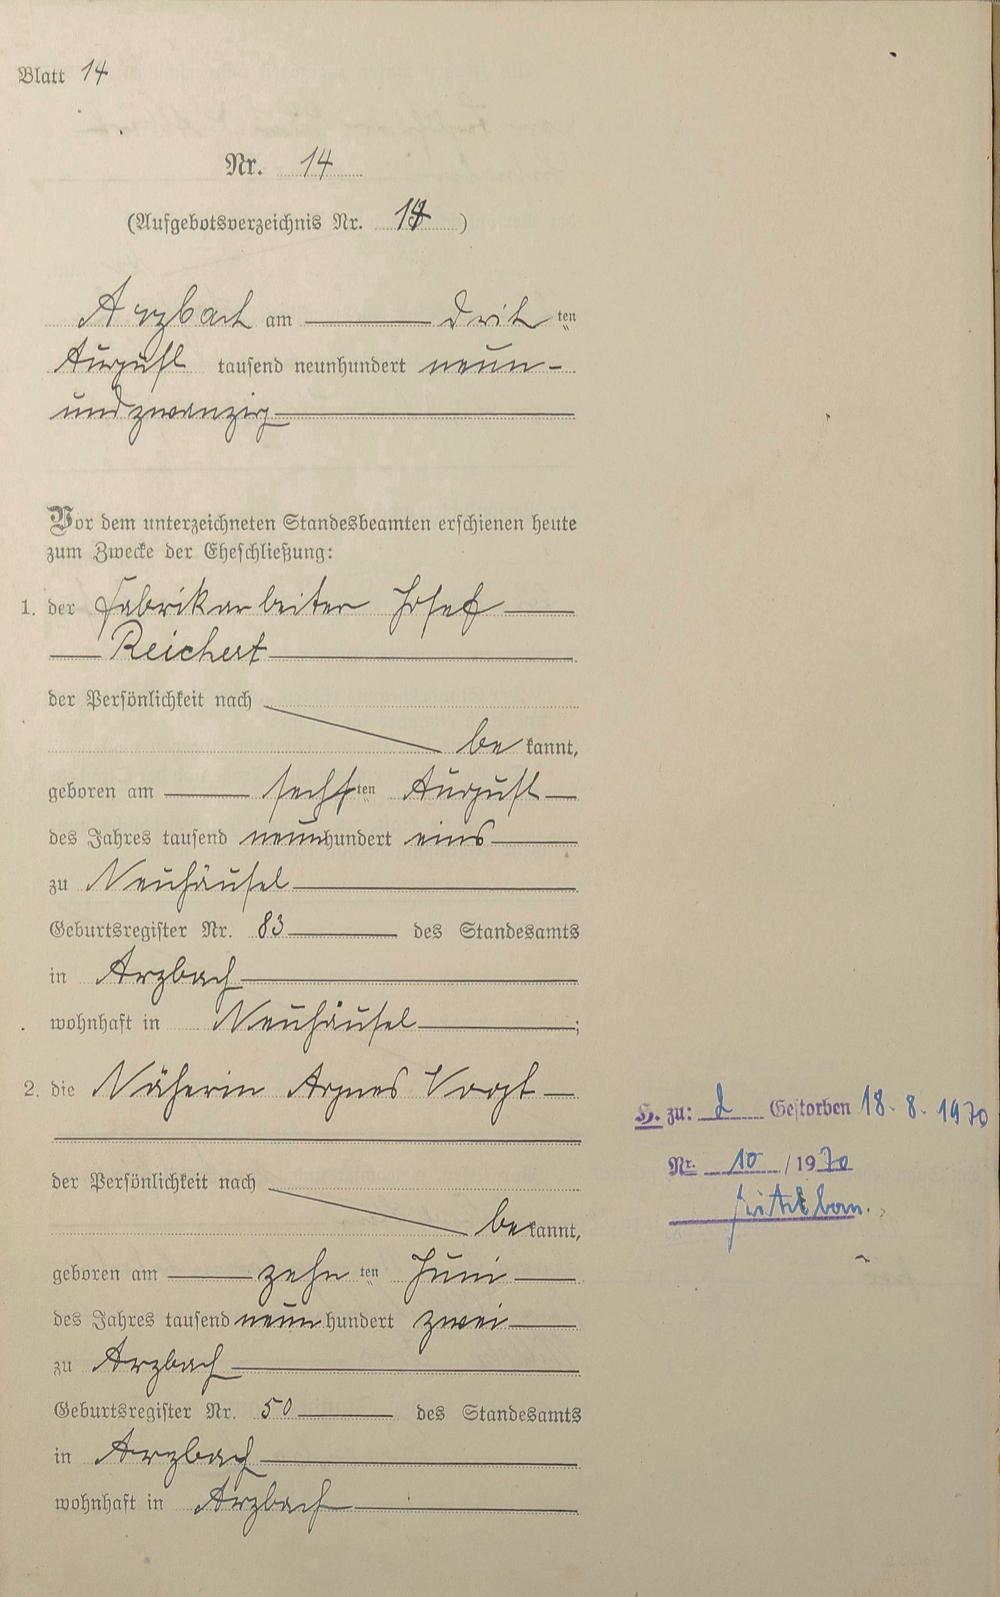 Blatt 14
Nr. 14
(Aufgebotsverzeichnis Nr. 14)
Arzbach am dritten
August tausend neunhundert neun-
undzwanzig
Vor dem unterzeichneten Standesbeamten erschienen heute
zum Zwecke der Eheschließung:
1. der Fabrikarbeiter Josef
Reichert
der Persönlichkeit nach
bekannt,
geboren am sechsten August
des Jahres tausend neunhundert eins
zu Neuhäusel
Geburtsregister Nr. 83 des Standesamts
in Arzbach
wohnhaft in Neuhäusel;
2. die Näherin Agnes Vogt
der Persönlichkeit nach
bekannt,
geboren am zehnten Juni
des Jahres tausend neunhundert zwei
zu Arzbach
Geburtsregister Nr. 50 des Standesamts
in Arzbach
wohnhaft in Arzbach
H. zu: 2 Gestorben 18.8.1970
Nr. 10/1970